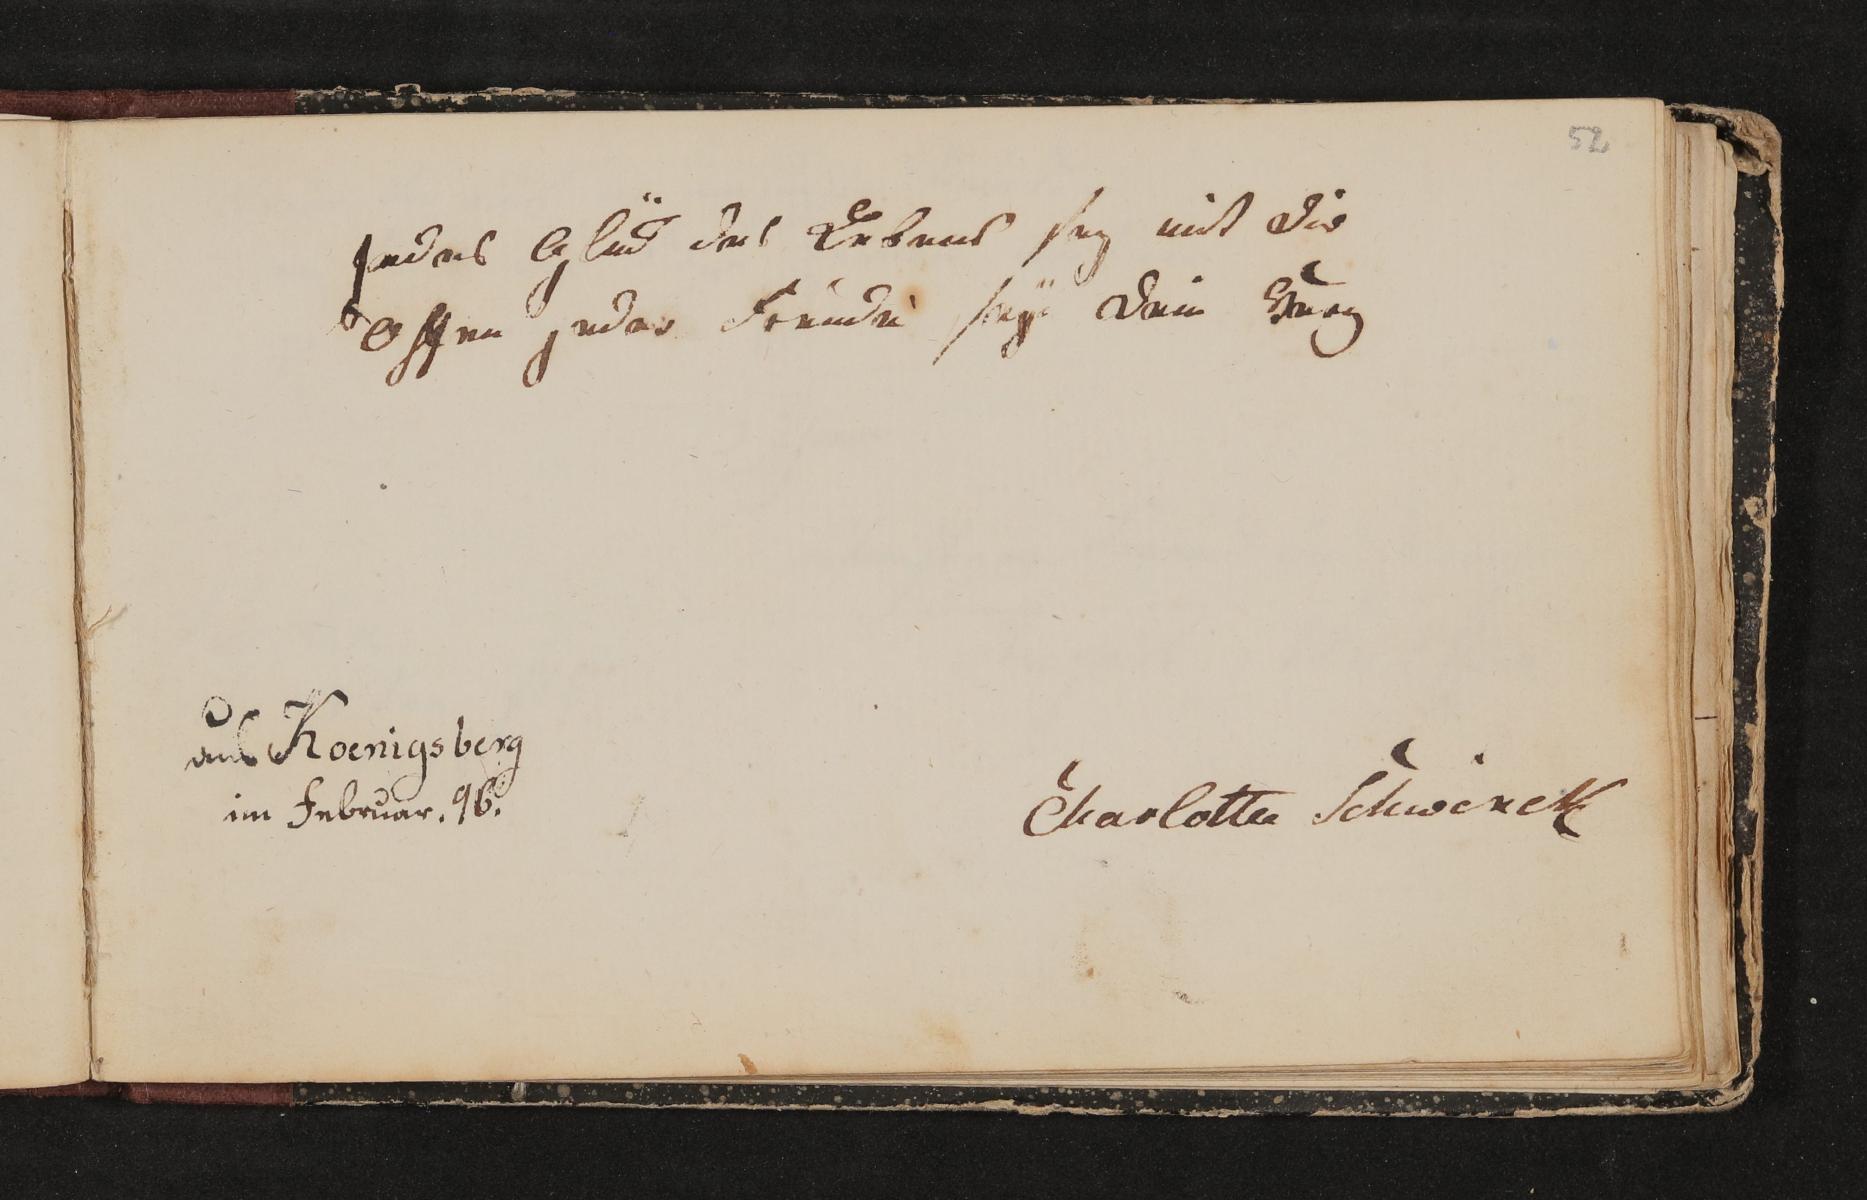 52
Jedes Glük des Lebens sey mit Dir
Offen jeder Freude sey Dein Weeg
aus Koenigsberg
im Februar. 96.
Charlotte Schwinck